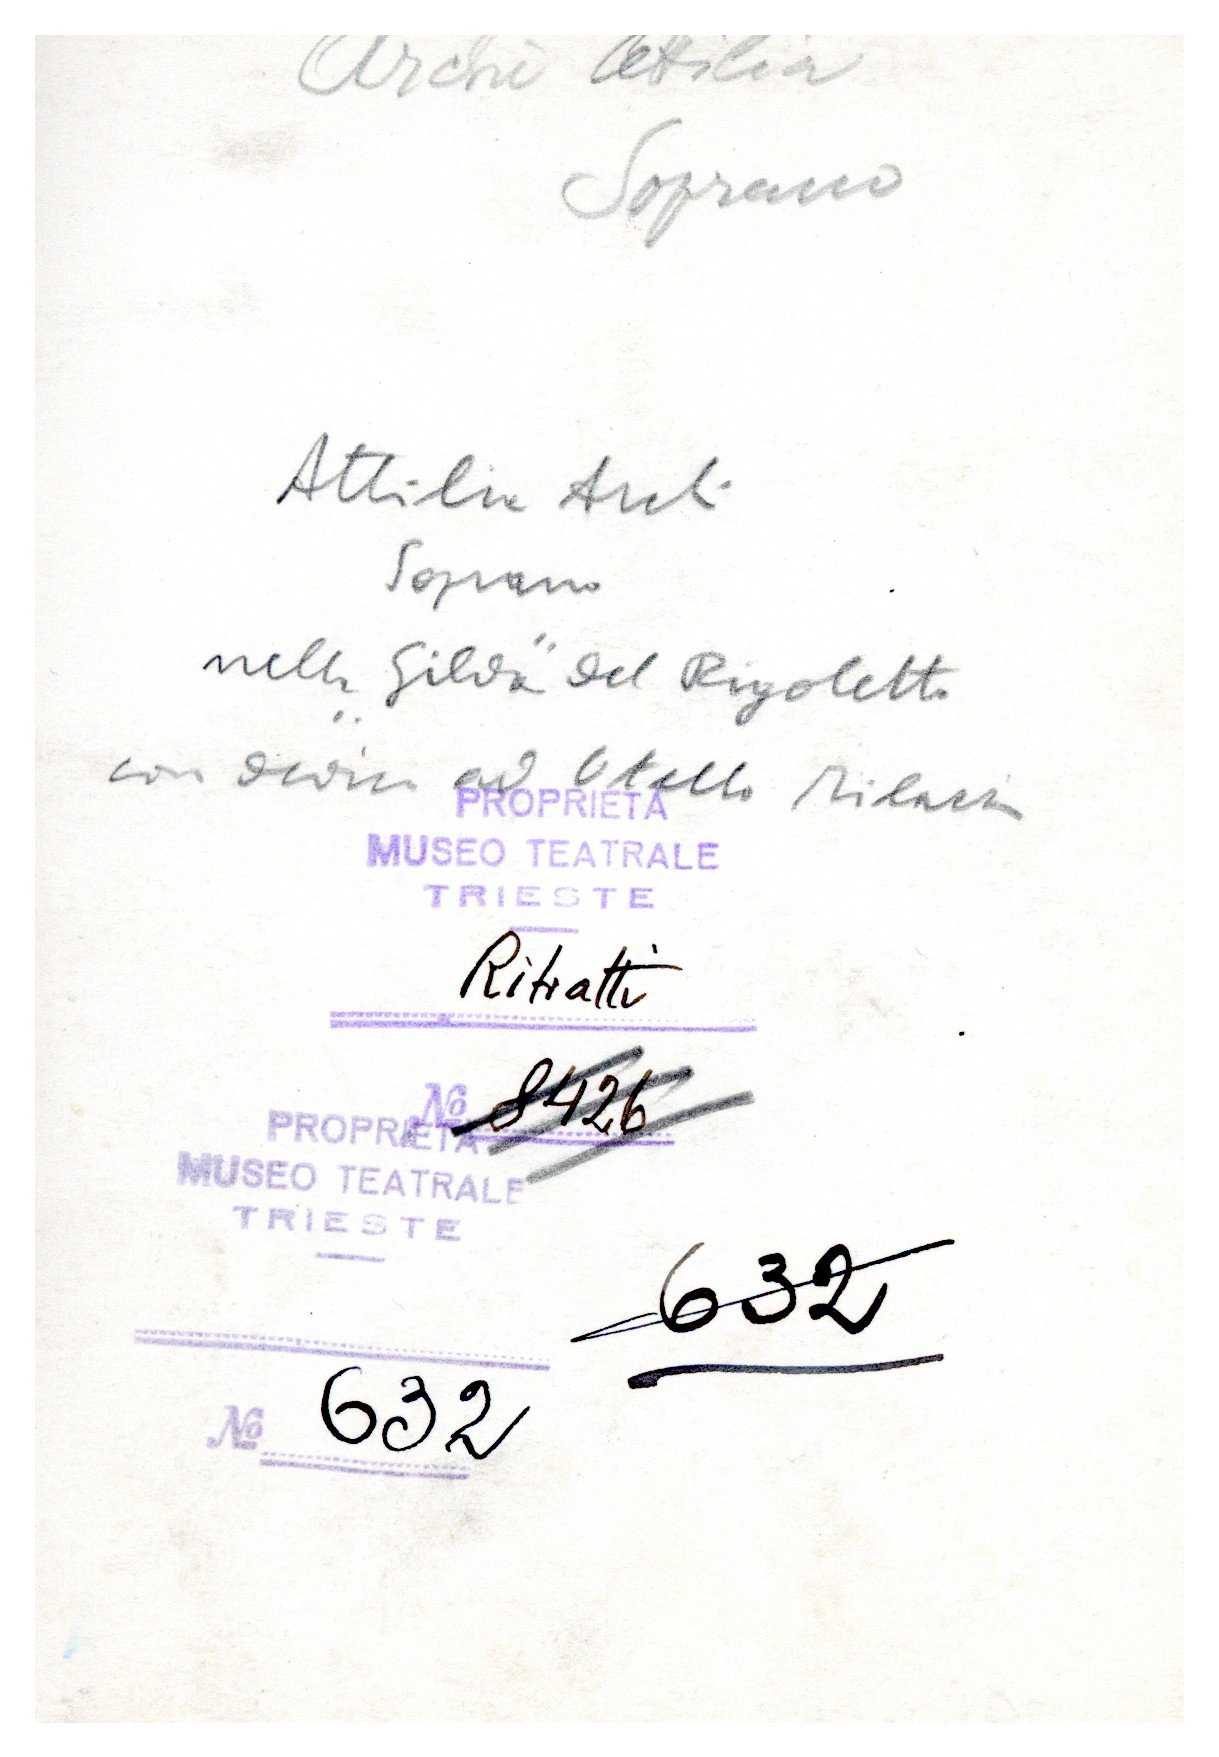 Archi Attilia
Soprano
Attilia Archi
Soprano
nella "Gilda" del Rigoletto
con dedica ad Otello
PROPRIETÀ
MUSEO TEATRALE
TRIESTE
Ritratti
No 8426
PROPRIETÀ
MUSEO TEATRALE
TRIESTE
632
No 632